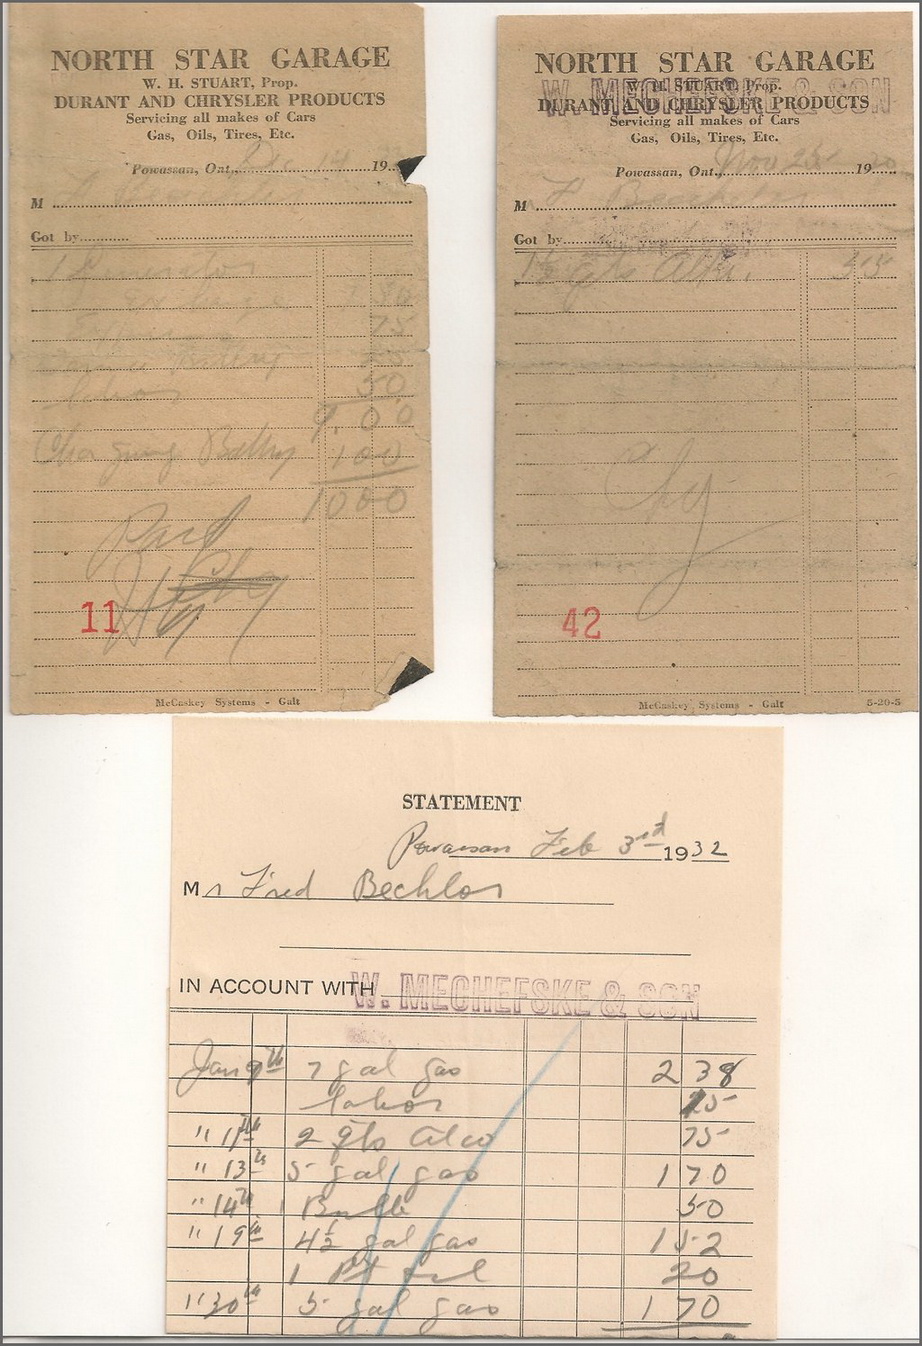 NORTH STAR GARAGE
W. H. STUART, Prop.
DURANT AND CHRYSLER PRODUCTS
Servicing all makes of Cars
Gas, Oils, Tires, Etc.
Powassan, Ont., Dec 19
M
Got by
75
50
9.00
Charging Battery 100
1000
Paid
11
McCaskey Systems - Galt
NORTH STAR GARAGE
W. H. STUART, Prop.
W. MECHEFSKE & SON
DURANT AND CHRYSLER PRODUCTS
Servicing all makes of Cars
Gas, Oils, Tires, Etc.
Powassan, Ont., Nov 25 19
M F
Got by
1½ qts 55
Chg
42
McCaskey Systems - Galt 5-20-5
STATEMENT
Powassan Feb 3rd 1932
Mr Fred Bechlor
IN ACCOUNT WITH W. MECHEFSKE & SON
Jan 9th 7 gal gas 2 38
labor
" 11th 2 qts alco 75
" 13th 5 gal gas 1 70
" 14th 1 Bulb 50
" 19th 4½ gal gas 1 52
1 Pt oil 20
" 30th 5 gal gas 1 70